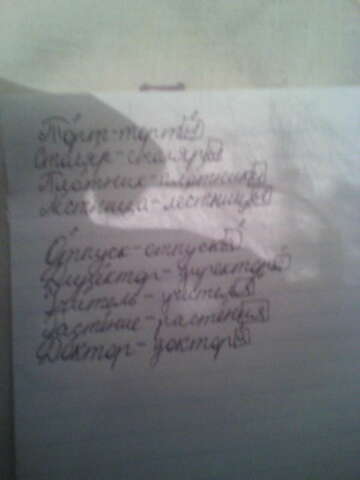 Торт-торты
Столяр-столяры
Плотник-плотники
Лестница-лестницы
Отпуск-отпуска
Директор-директора
Учитель-учителя
Растение-растения
Доктор-доктора